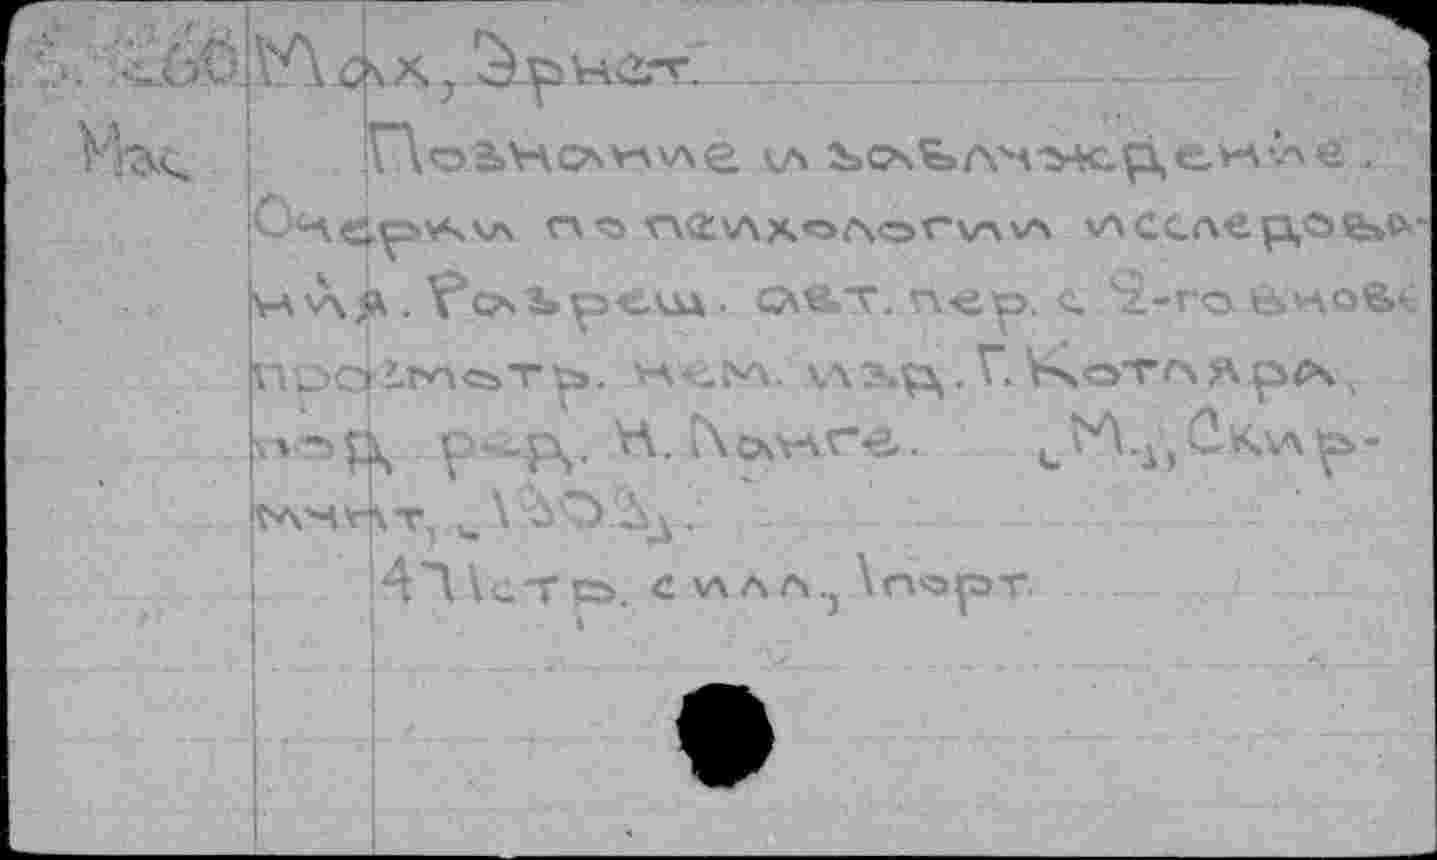 Мах, Эрнст.
Мах
Познание и заблуждение.
Очерки по психологии исследова-
ния. Разреш. авт. пер. с 2-го вновь
просмотр. нем. изд. Г. Котляра,
под ред. Н. Ланге. [М.], Скир-
мунт, [1909].
471 стр. с илл., 1 порт.